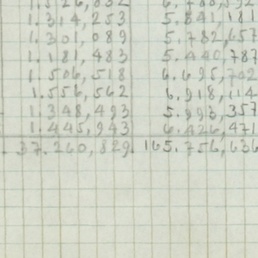 1.314,253 5.841,181
1.301,089 5.782,657
1.181,483 5.440,787
1.506,518 6.695,702
1.556,562 6.918,114
1.348,493 5.993,357
1.445,943 6.426,471
37.260,829 165.756,636